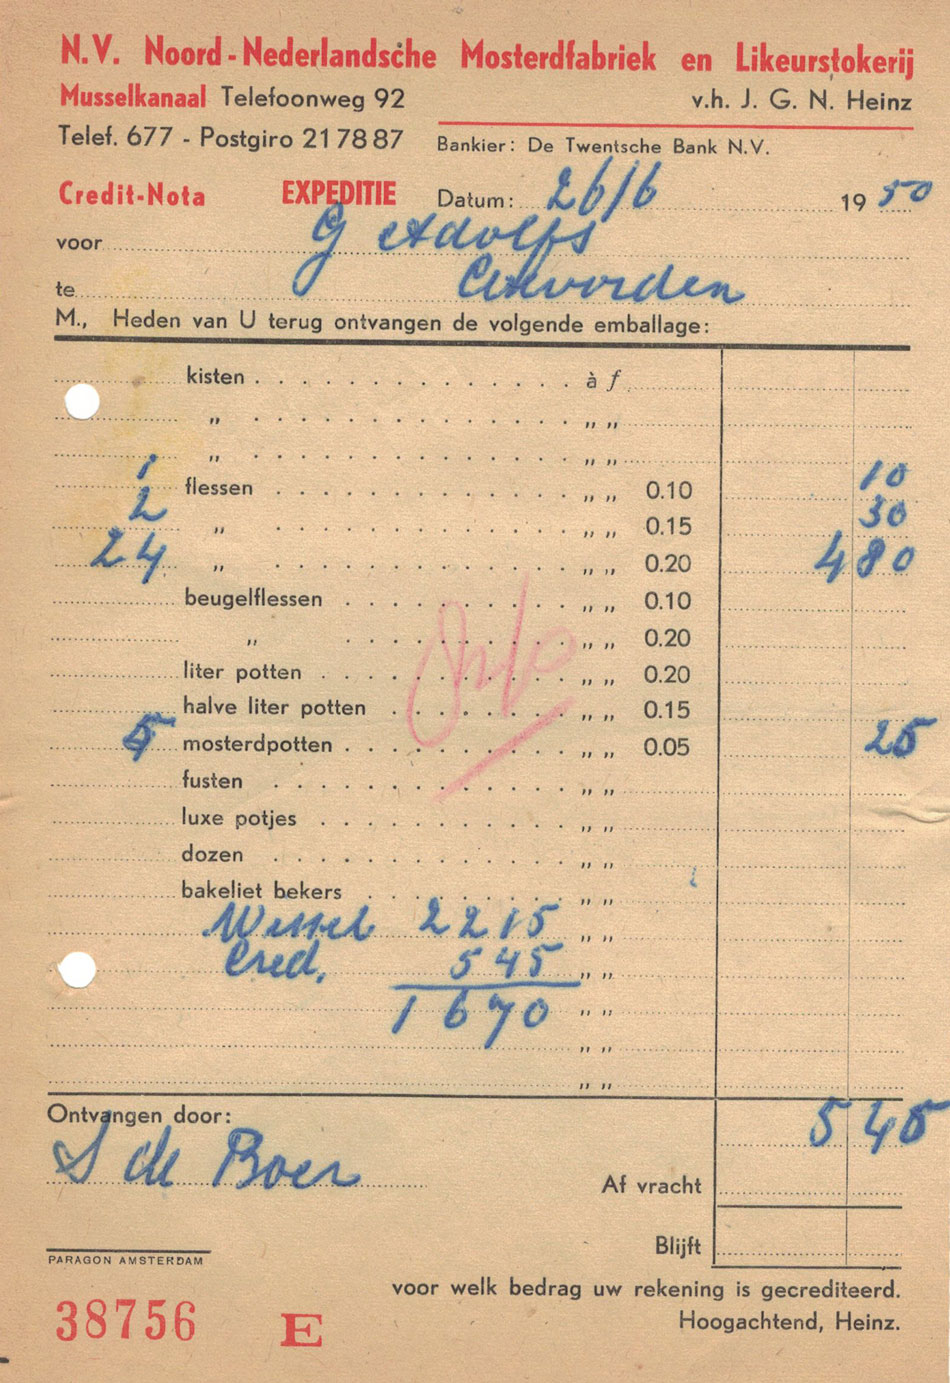 N.V. Noord-Nederlandsche Mosterdfabriek en Likeurstokerij
Musselkanaal Telefoonweg 92 v.h. J. G. N. Heinz
Telef. 677 - Postgiro 217887 Bankier: De Twentsche Bank N.V.
Credit-Nota EXPEDITIE Datum: 26/6 1950
voor G Adolfs
te Coevorden
M., Heden van U terug ontvangen de volgende emballage:
kisten à f
„ „ „
„ „ „
1 flessen „ „ 0.10 10
2 „ „ „ 0.15 30
24 „ „ „ 0.20 4 80
beugelflessen „ „ 0.10
„ „ „ 0.20
liter potten „ „ 0.20
halve liter potten „ „ 0.15
5 mosterdpotten „ „ 0.05 25
fusten „ „
luxe potjes „ „
dozen „ „
bakeliet bekers „ „
Wissel 22 15 „ „
Cred. 5 45 „ „
16 70 „ „
„ „
„ „
Ontvangen door: 5 45
S de Boer
Af vracht
Blijft
PARAGON AMSTERDAM
voor welk bedrag uw rekening is gecrediteerd.
Hoogachtend, Heinz.
38756 E